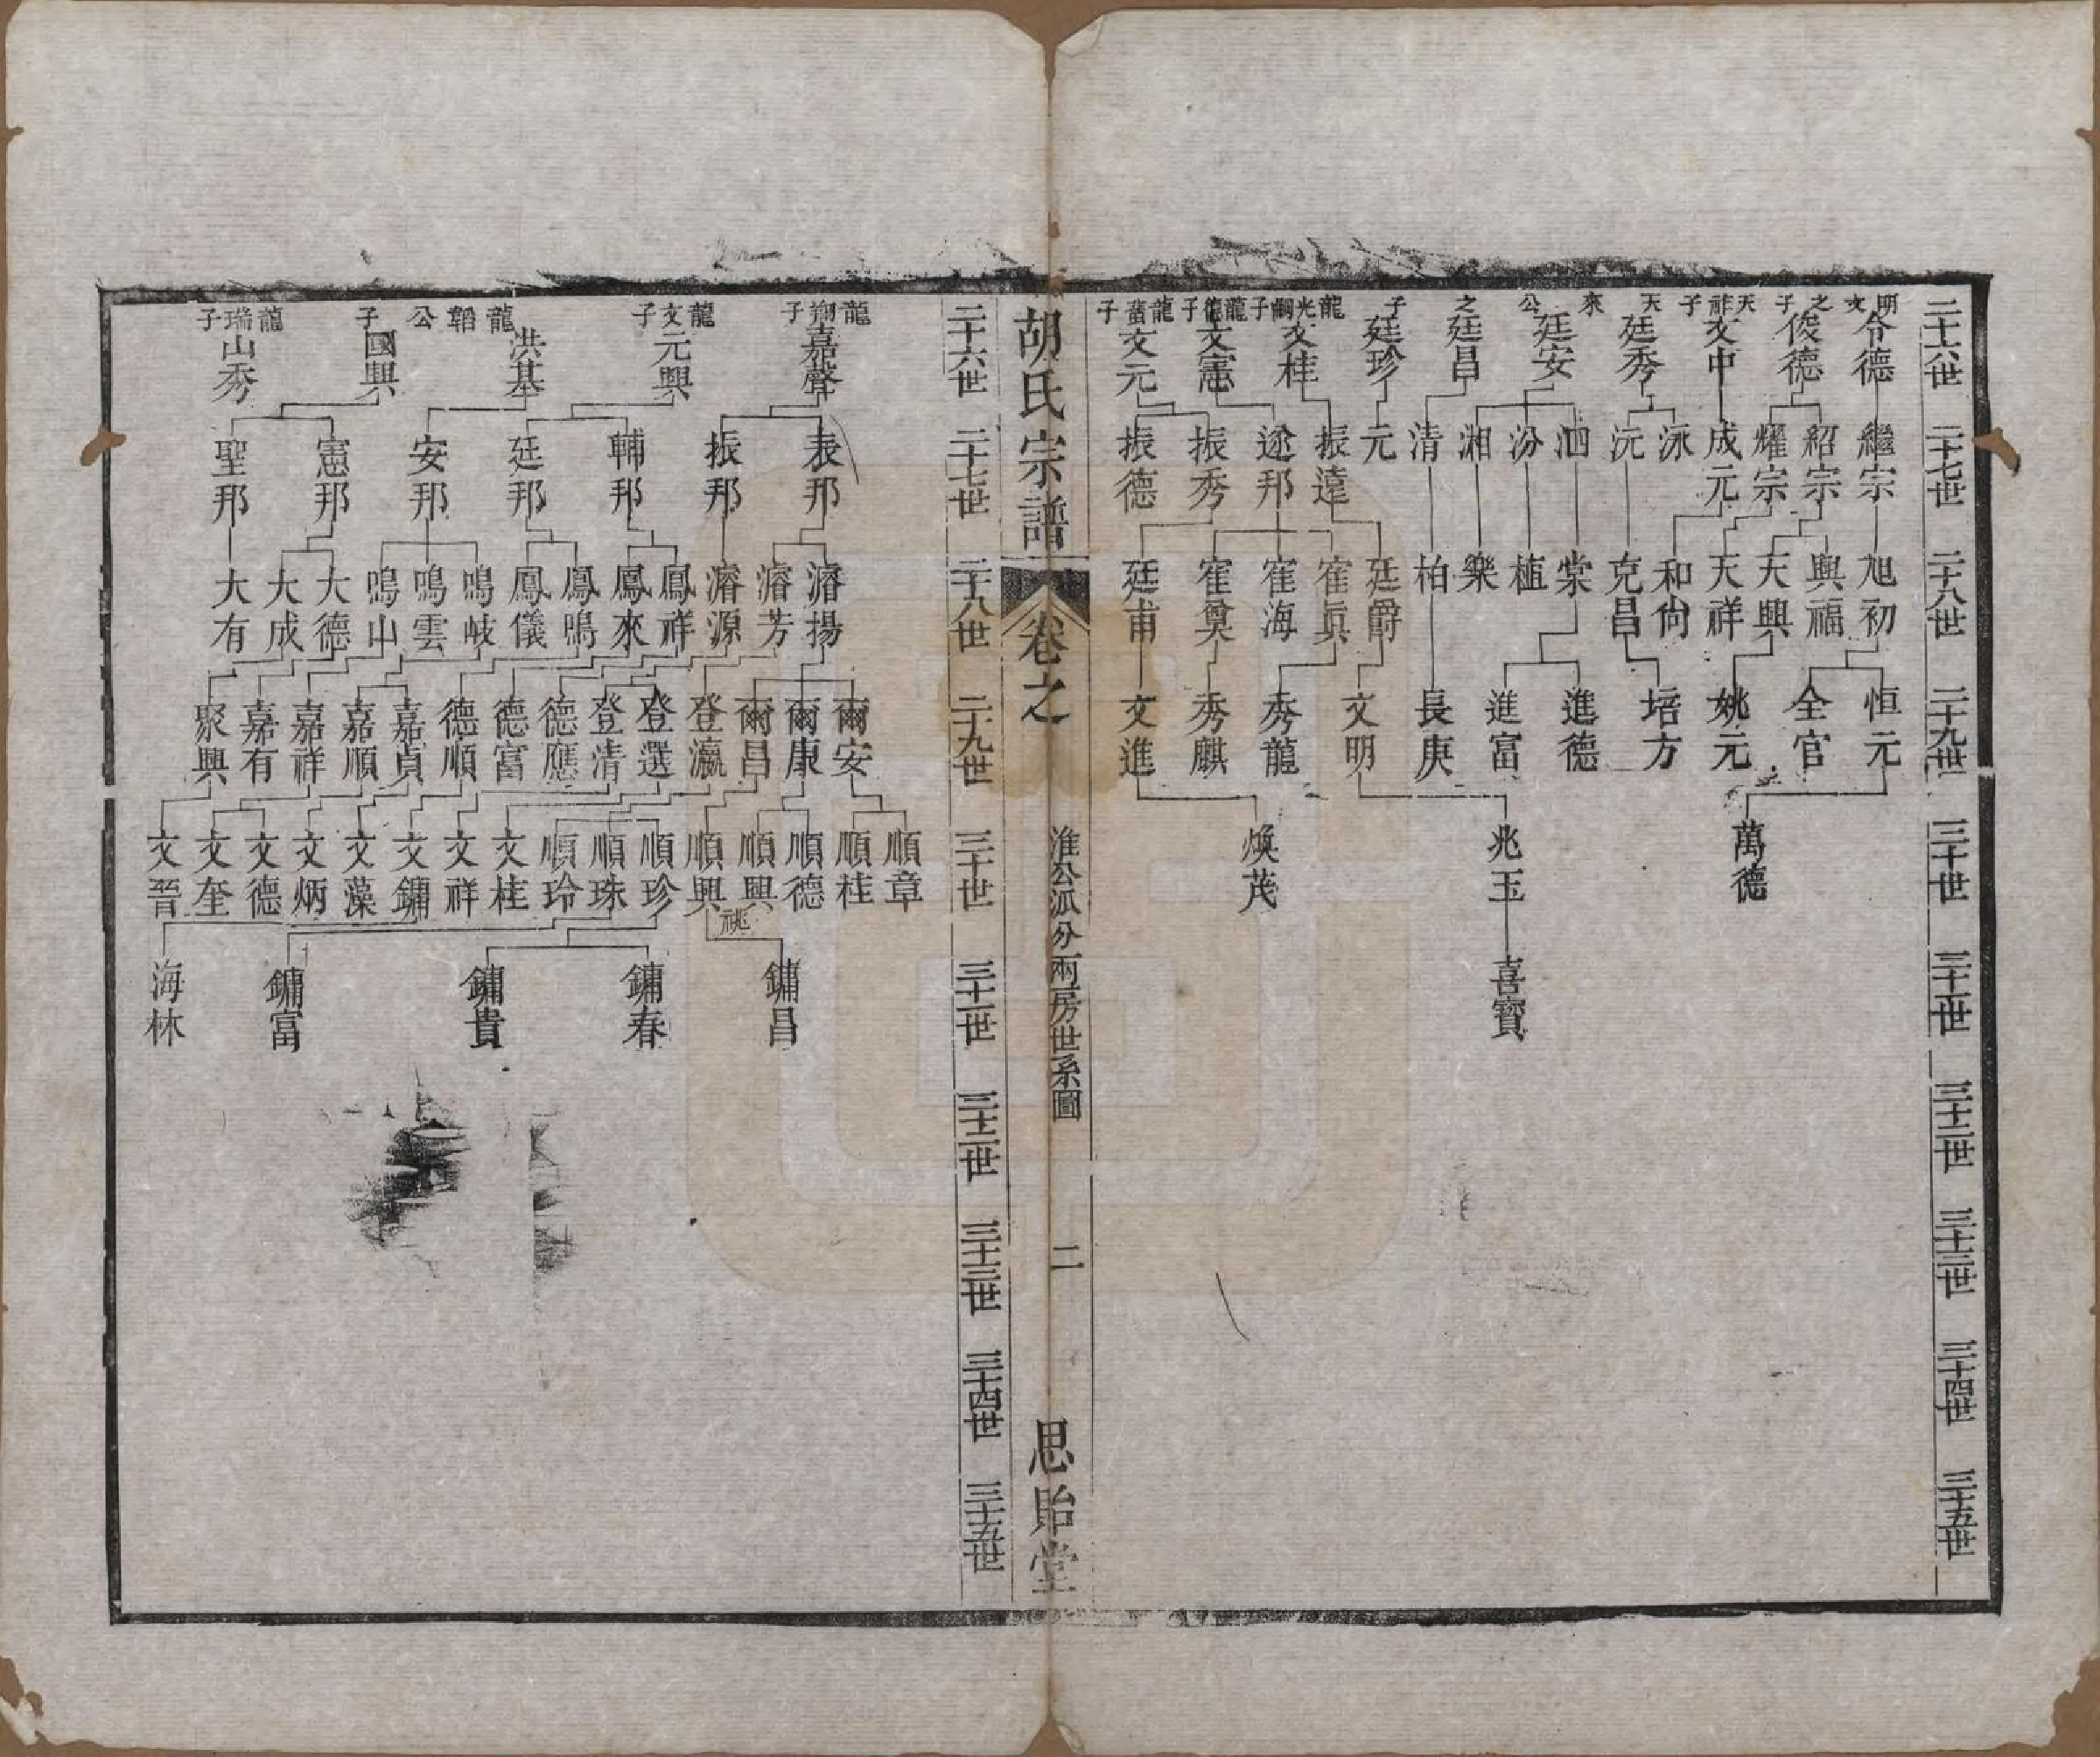 二十六世
二十七世
二十八世
二十九世
三十世
三十一世
三十二世
三十三世
三十四世
三十五世
明文之子
令德
俊德
天祥子
文中
天來公之子
廷秀
廷安
廷昌
廷珍
龍光嗣子
文桂
龍德子
文憲
龍舊子
文元
繼宗
紹宗
耀宗
成元
泳
沅
泗
汾
湘
清
元
振遠
逵邦
振秀
振德
旭初
興福
天興
天祥
和尙
克昌
棠
植
樂
柏
廷爵
寉眞
寉海
寉奠
廷甫
恒元
全官
姚元
培方
進德
進富
長庚
文明
秀龍
秀麒
文進
萬德
兆玉
煥茂
喜寶
胡氏宗譜
卷之
淮公派分兩房世系圖
二
思貽堂
二十六世
二十七世
二十八世
二十九世
三十世
三十一世
三十二世
三十三世
三十四世
三十五世
龍翔子
嘉聲
龍文子
元興
龍韜公子
洪基
國興
龍瑞子
山秀
表邦
振邦
輔邦
廷邦
安邦
憲邦
聖邦
濬揚
濬芳
濬源
鳳祥
鳳來
鳳鳴
鳳儀
鳴岐
鳴雲
鳴山
大德
大成
大有
爾安
爾康
爾昌
登瀛
登選
登清
德應
德富
德順
嘉貞
嘉順
嘉祥
嘉有
聚興
順章
順桂
順德
順興
順興
祧
順珍
順珠
順玲
文桂
文祥
文鏞
文藻
文炳
文德
文奎
文晉
鏞昌
鏞春
鏞貴
鏞富
海林